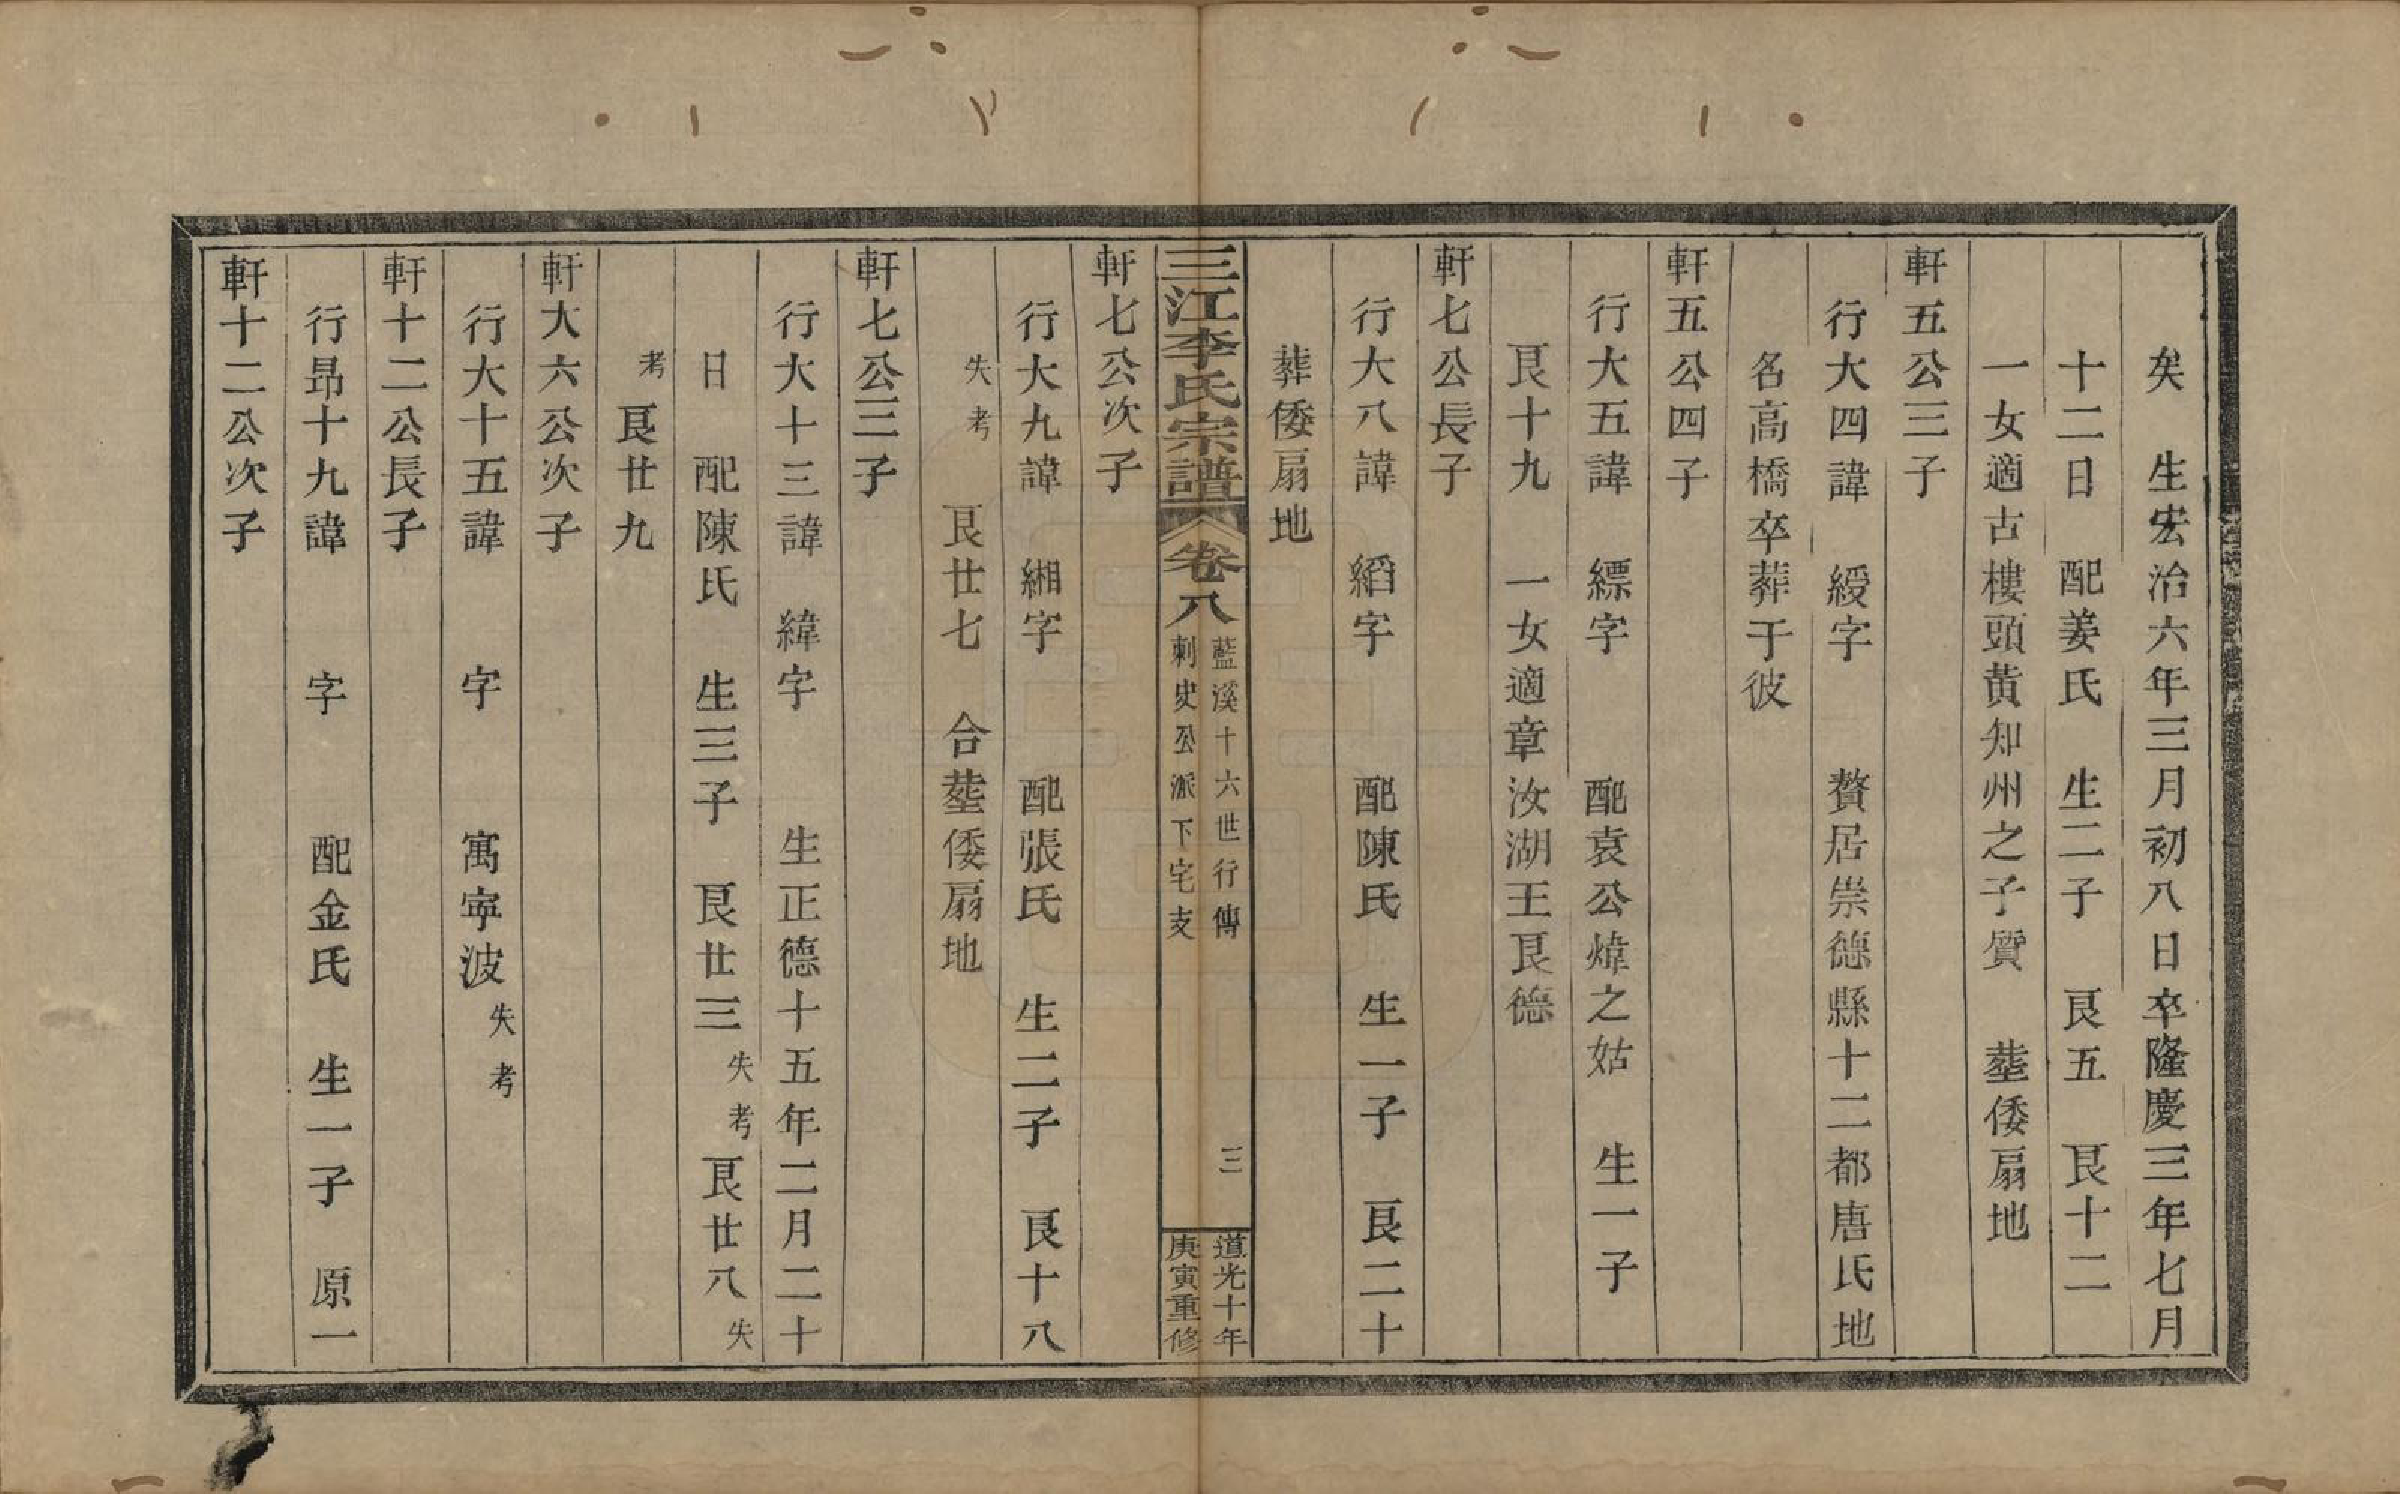 矣　生宏治六年三月初八日卒隆慶三年七月
十二日　配姜氏　生二子　艮五　艮十二
一女適古樓頭黃知州之子質　塟倭扇地
軒五公三子
行大四諱　綬字　贅居崇德縣十二都唐氏地
名高橋卒葬于彼
軒五公四子
行大五諱　縹字　配袁公煒之姑　生一子
艮十九　一女適章汝湖王艮德
軒七公長子
行大八諱　縚字　配陳氏　生一子　艮二十
葬倭扇地
三江李氏宗譜　卷八　藍溪十六世行傳　刺史公派下宅支　三　道光十年庚寅重修
軒七公次子
行大九諱　緗字　配張氏　生二子　艮十八
失考　艮廿七　合塟倭扇地
軒七公三子
行大十三諱　緯字　生正德十五年二月二十
日　配陳氏　生三子　艮廿三失考艮廿八失
考艮廿九
軒大六公次子
行大十五諱　字　寓寧波失考
軒十二公長子
行昂十九諱　字　配金氏　生一子　原一
軒十二公次子